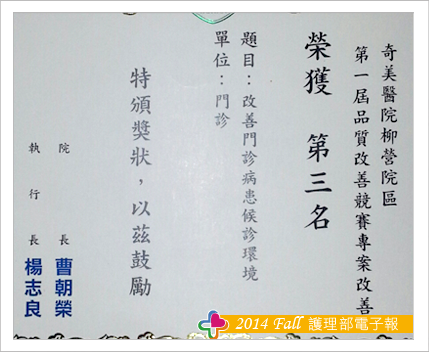 奇美醫院柳營院區
第一屆品質改善競賽專案改善
榮獲 第三名
題目：改善門診病患候診環境
單位：門診
特頒獎狀，以茲鼓勵
院長 曹朝榮
執行長 楊志良
2014 Fall 護理部電子報